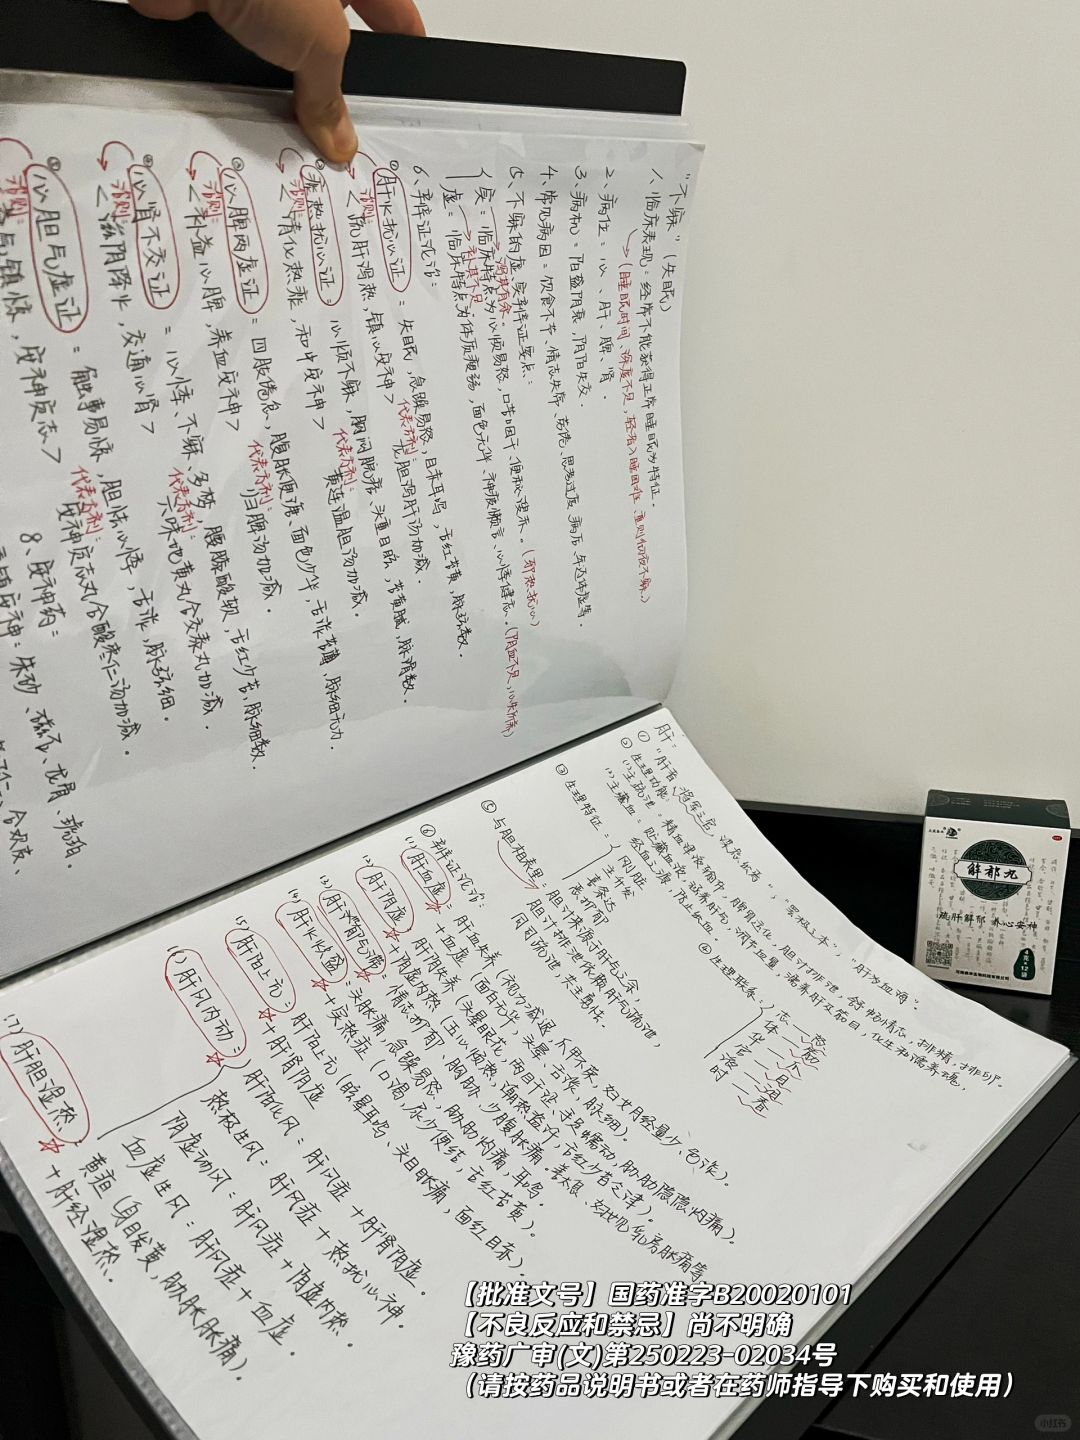 "不寐"（失眠）
1、临床表现：经常不能获得正常睡眠为特征.
→（睡眠时间、深度不足，轻者入睡困难、重则彻夜不寐.）
2、病位：心、肝、脾、肾.
3、病机：阳盛阴衰，阴阳失交.
4、常见病因：饮食不节、情志失常、劳倦、思虑过度、病后、年迈体虚等.
5、不寐的虚实辨证要点：
实：临床特点为心烦易怒、口苦咽干、便秘溲赤.（邪热扰心）
泻其有余.
虚：临床特点为体质瘦弱，面色无华、神疲懒言、心悸健忘.（阴血不足，心失所养）
补其不足
6、辨证论治：
①肝火扰心证：失眠，急躁易怒，目赤耳鸣，舌红苔黄，脉弦数.
治则：<疏肝泻热，镇心安神> 代表方剂：龙胆泻肝汤加减.
②痰热扰心证：心烦不寐，胸闷脘痞、头重目眩，苔黄腻，脉滑数.
治则：<清化热痰，和中安神> 代表方剂：黄连温胆汤加减.
③心脾两虚证：四肢倦怠，腹胀便溏、面色少华，舌淡苔薄，脉细无力.
治则：<补益心脾，养血安神> 代表方剂：归脾汤加减.
④心肾不交证：心悸、不寐、多梦，腰膝酸软，舌红少苔，脉细数.
治则：<滋阴降火，交通心肾> 代表方剂：六味地黄丸合交泰丸加减.
⑤心胆气虚证：触事易惊，胆怯心悸，舌淡，脉弦细.
治则：镇惊，安神定志> 代表方剂：安神定志丸合酸枣仁汤加减.
8、安神药：
安神：朱砂、磁石、龙骨、琥珀.
合欢皮、
肝：
"肝者，将军之官，谋虑出焉"，"罢极之本"，"肝为血海".
①生理功能：
(1)主疏泄：精血津液输布，脾胃运化，胆汁排泄，舒畅情志，排精，排卵.
(2)主藏血：贮藏血液，涵养肝气，调节血量，濡养肝及筋目，化生和濡养魂，
经血之源，防止出血.
③生理特征：
刚脏
主升发
喜条达
恶抑郁
④生理联系：
志—怒
体—筋
华—爪
官—目
液—泪
时—春
⑤与胆相表里：胆汁来源于肝气之余，
胆汁排泄依赖肝气疏泄，
同司疏泄，共主勇怯.
⑥辨证论治：
(1)肝血虚：肝血失养（视力减退，爪甲不荣，妇女月经量少、色淡）.
+血虚（面白无华，头晕、舌淡，脉细）.
(2)肝阴虚：肝阴失养（头晕眼花，两目干涩、手足蠕动，胁肋隐隐灼痛）.
+阴虚内热（五心烦热，潮热盗汗，舌红少苔乏津）.
(3)肝郁气滞：情志抑郁、胸胁、少腹胀痛.善太息、妇女见乳房胀痛等
(4)肝火炽盛：头胀痛，急躁易怒、胁肋灼痛，耳鸣.
+实热症（口渴，尿少便结，舌红苔黄）.
(5)肝阳上亢：肝阳上亢（眩晕耳鸣、头目胀痛，面红目赤）.
+肝肾阴虚
(6)肝风内动：
肝阳化风：肝风症+肝肾阴虚.
热极生风：肝风症+热扰心神.
阴虚动风：肝风症+阴虚内热.
血虚生风：肝风症+血虚.
(7)肝胆湿热：黄疸（身目发黄，胁肋胀痛）.
+肝经湿热.
解郁丸
疏肝解郁 养心安神
【批准文号】国药准字B20020101
【不良反应和禁忌】尚不明确
豫药广审(文)第250223-02034号
（请按药品说明书或者在药师指导下购买和使用）
小红书